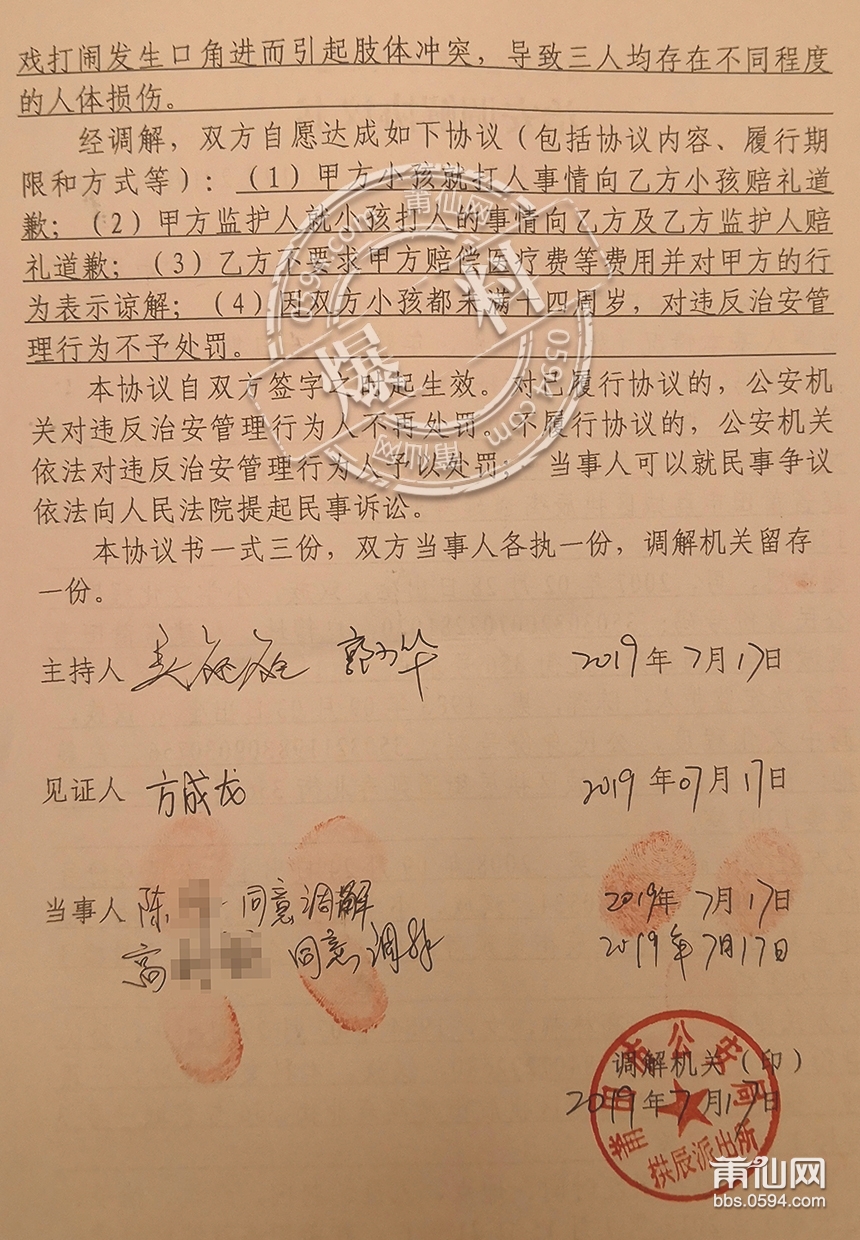 戏打闹发生口角进而引起肢体冲突，导致三人均存在不同程度
的人体损伤。
经调解，双方自愿达成如下协议（包括协议内容、履行期
限和方式等）：（1）甲方小孩就打人事情向乙方小孩赔礼道
歉；（2）甲方监护人就小孩打人的事情向乙方及乙方监护人赔
礼道歉；（3）乙方不要求甲方赔偿医疗费等费用并对甲方的行
为表示谅解；（4）因双方小孩都未满十四周岁，对违反治安管
理行为不予处罚。
本协议自双方签字之时起生效。对已履行协议的，公安机
关对违反治安管理行为人不再处罚。不履行协议的，公安机关
依法对违反治安管理行为人予以处罚； 当事人可以就民事争议
依法向人民法院提起民事诉讼。
本协议书一式三份，双方当事人各执一份，调解机关留存
一份。
主持人 2019年7月17日
见证人 方成龙 2019年07月17日
当事人 陈 同意调解 2019年7月17日
高 同意调解 2019年7月17日
调解机关（印）
2019年7月17日
莆田市公安局
拱辰派出所
莆仙网
爆料
bbs.0594.com
莆仙网
莆仙网
bbs.0594.com